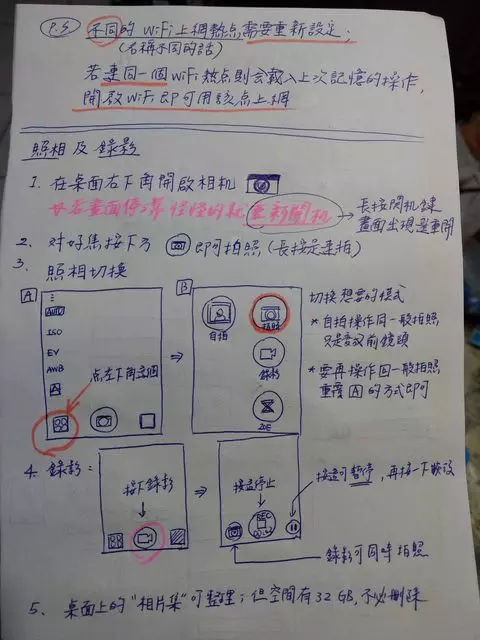 P.S. 不同的 WiFi 上網熱點需要重新設定;
(名稱不同的話)
若連同一個 WiFi 熱點則會載入上次記憶的操作,
開啟 WiFi 即可用該点上網
照相及錄影
1. 在桌面右下角開啟相機
若畫面停滯怪怪的就重新開機 → 長按開机鍵
畫面出現選重開
2. 对好焦按下方 即可拍照 (長按是連拍)
3. 照相切換
A
AUTO
ISO
EV
AWB
点左下角這個
B
自拍
拍照
錄影
ZOE
切換想要的模式
* 自拍操作同一般拍照
只是放前鏡頭
* 要再操作回一般拍照
重覆 A 的方式即可
4. 錄影:
按下錄影
按這停止
REC
按這可暫停, 再按一下恢復
錄影可同時拍照
5. 桌面上的"相片集"可整理; 但空間有 32 GB, 不必刪除